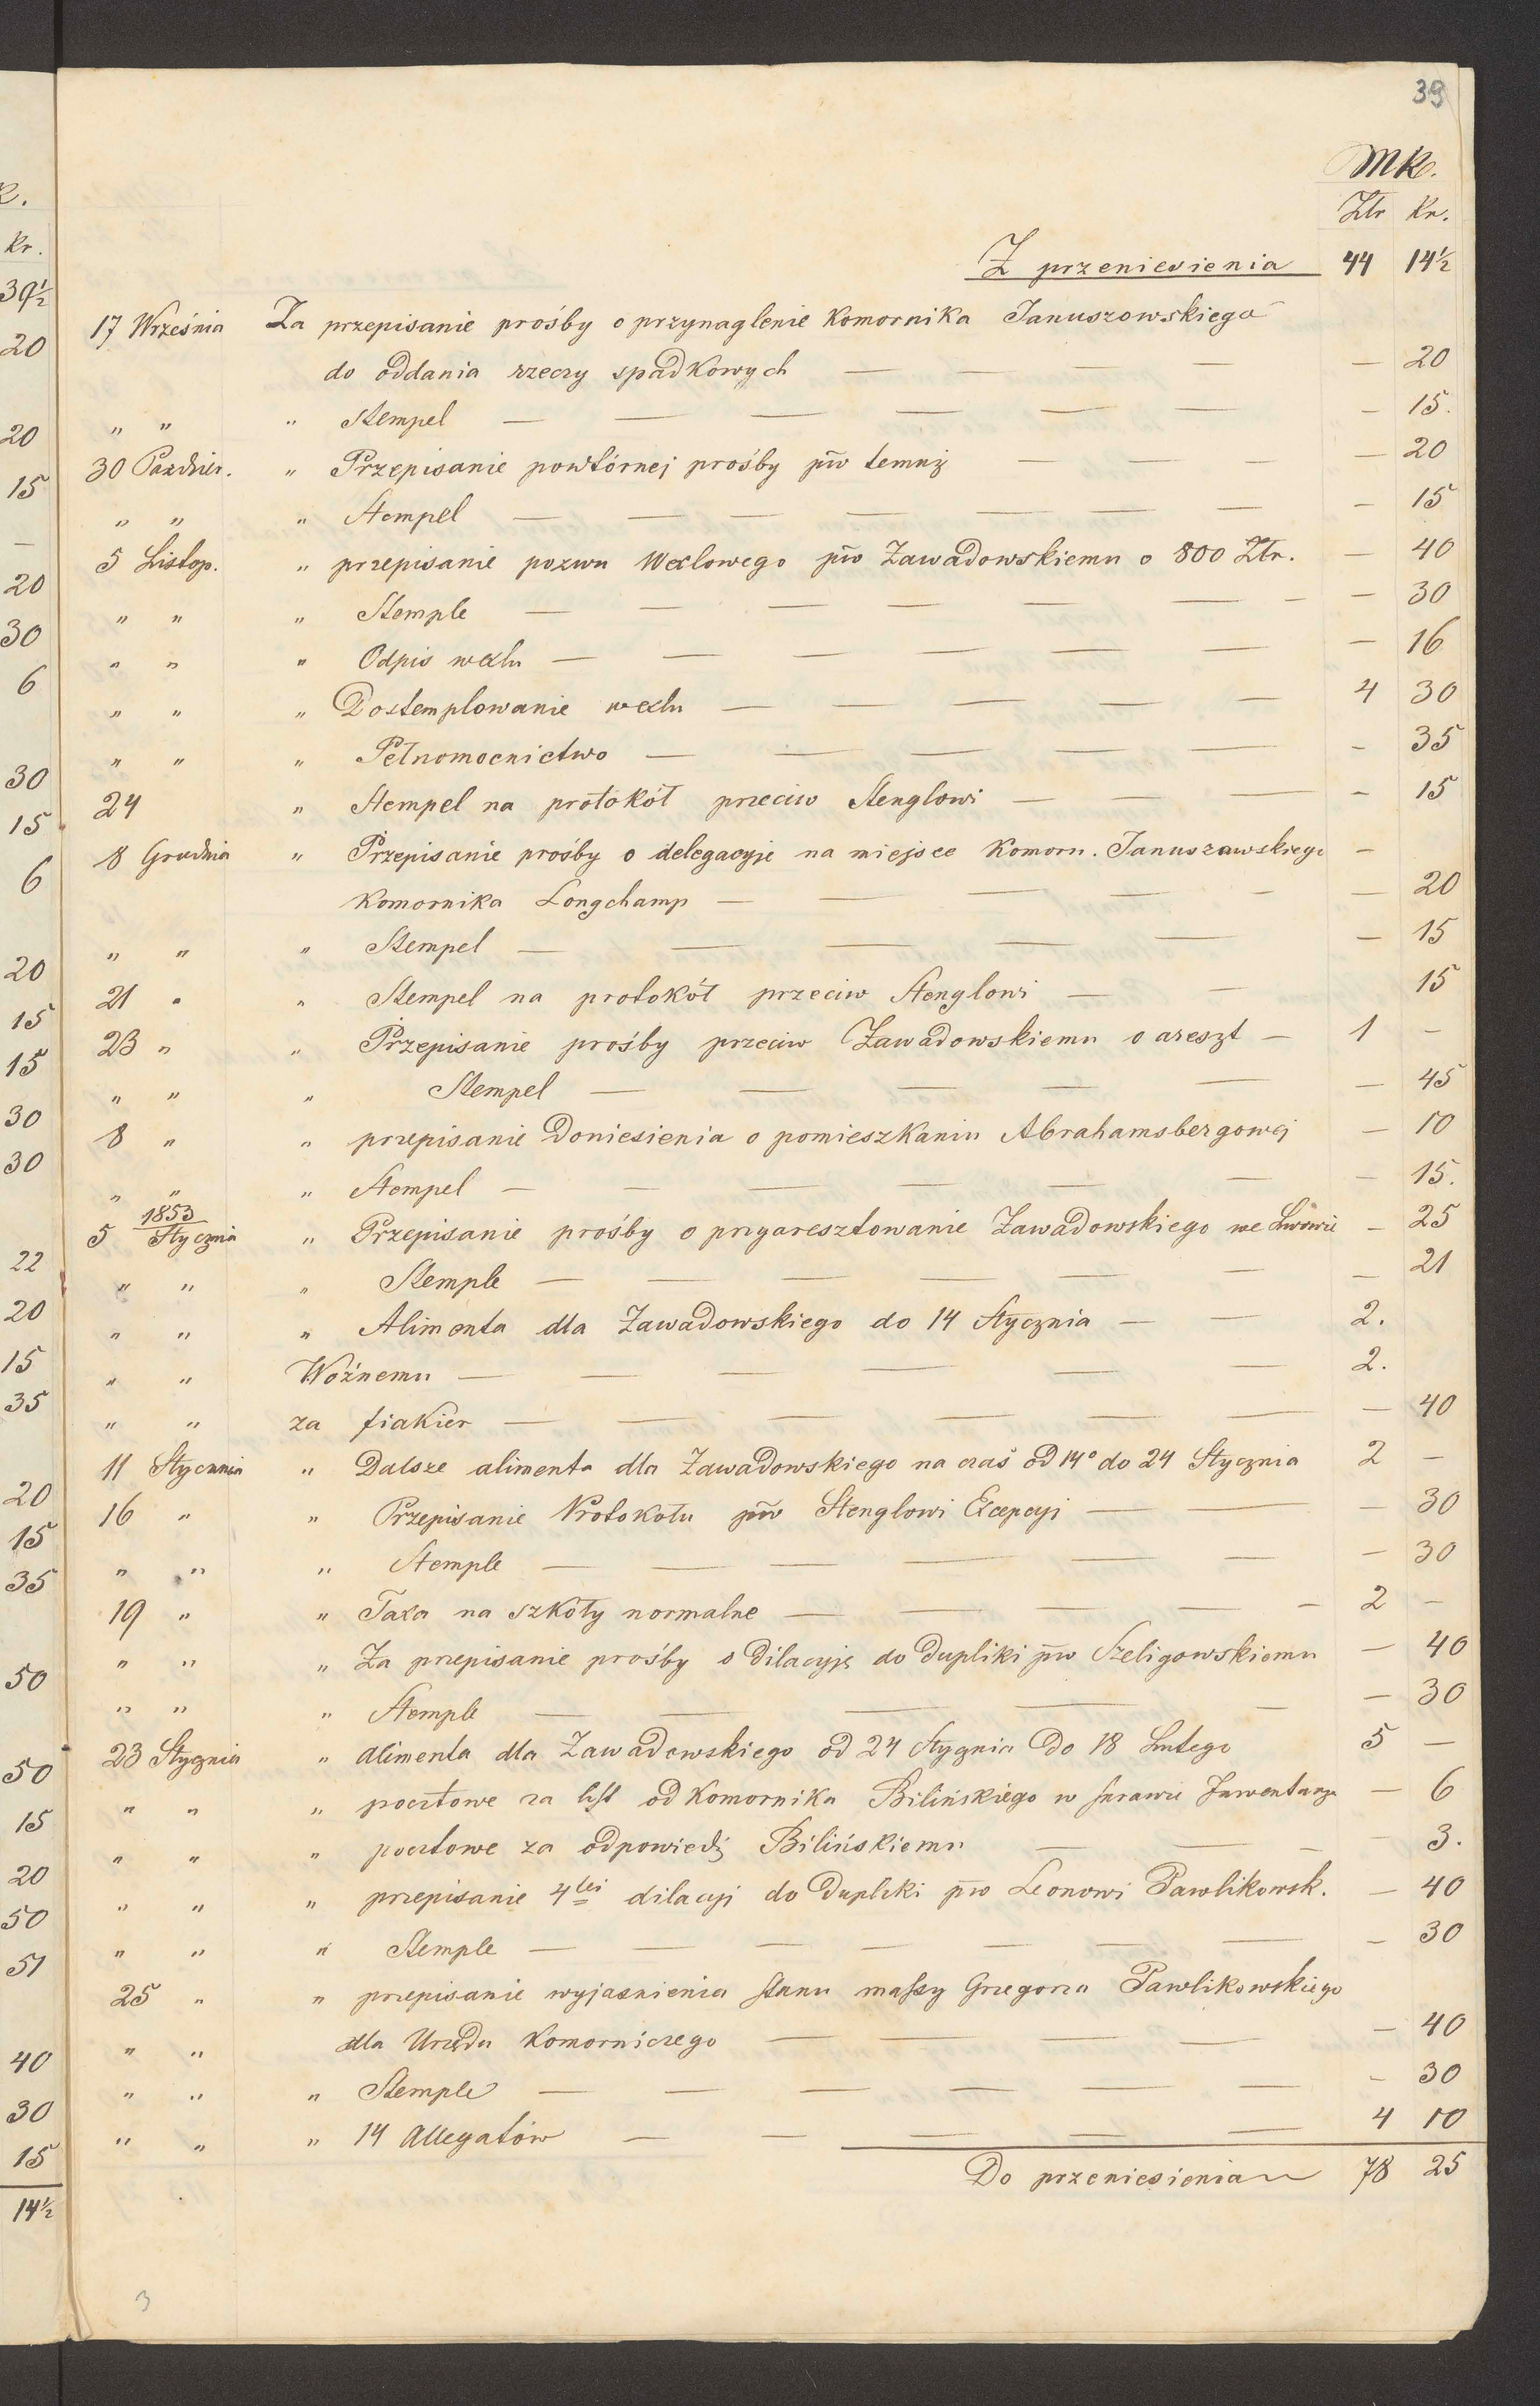 39
MK.
Ztr Kr.
Z przeniesienia 44 14½
17 Września Za przepisanie prośby o przynaglenie Komornika Januszowskiego
do oddania rzeczy spadkowych — — — — — 20
" " " Stempel — — — — — — — 15.
30 Paździer. " Przepisanie powtórnej prośby pīw temuż — — — — 20
" " " Stempel — — — — — — — — 15
5 Listop. " przepisanie pozwu Wexlowego pīw Zawadowskiemu o 800 Ztr. — 40
" " " Stemple — — — — — — — — 30
" " " Odpis wexlu — — — — — — — 16
" " " Dostemplowanie wexlu — — — — — 4 30
" " " Pełnomocnictwo — — — — — — 35
24 " Stempel na protokół przeciw Stenglowi — — — — 15
8 Grudnia " Przepisanie prośby o delegacyje na miejsce Komorn. Januszawskiego —
Komornika Longchamp — — — — — — 20
" " " Stempel — — — — — — 15
21 " " Stempel na protokół przeciw Stenglowi — — 15
23 " " Przepisanie prośby przeciw Zawadowskiemu o areszt — 1 —
" " " Stempel — — — — — — 45
8 " " przepisanie Doniesienia o pomieszkaniu Abrahamsbergowej — 10
" " " Stempel — — — — — — — 15.
1853
5 Stycznia " Przepisanie prośby o przyaresztowanie Zawadowskiego we Lwowie — 25
" " " Stemple — — — — — — — 21
" " " Alimenta dla Zawadowskiego do 14 Stycznia — — 2.
" " Woźnemu — — — — — — 2.
" " za fiakier — — — — — — — 40
11 Stycznia " Dalsze alimenta dla Zawadowskiego na czas od 14º do 24 Stycznia 2 —
16 " " Przepisanie Protokołu pīw Stenglowi Excepcyi — — — 30
" " " Stemple — — — — — — — 30
19 " " Taxa na szkoły normalne — — — — — 2 —
" " " Za przepisanie prośby o Dilacyję do Dupliki pīw Szeligowskiemu — 40
" " " Stemple — — — — — — 30
23 Stycznia " Alimenta dla Zawadowskiego od 24 Stycznia Do 18 Lutego 5 —
" " " pocztowe za list od Komornika Bilińskiego w sprawie Inwentarza — 6
" " " pocztowe za odpowiedź Bilińskiemu — — — — 3.
" " " przepisanie 4tej dilacyi do Dupliki pīw Leonowi Pawlikowsk. — 40
" " " Stemple — — — — — — — — 30
25 " " przepisanie wyjasnienia stanu massy Grzegorza Pawlikowskiego
" " dla Urzędu Komorniczego — — — — — 40
" " " Stemple — — — — — — — 30
" " " 14 Allegatów — — — — — 4 10
Do przeniesienia 78 25
3
K.
Kr.
39½
20
20
15
—
20
30
6
30
15
6
20
15
15
30
30
22
20
15
35
20
15
35
50
50
15
20
50
51
40
30
15
14½